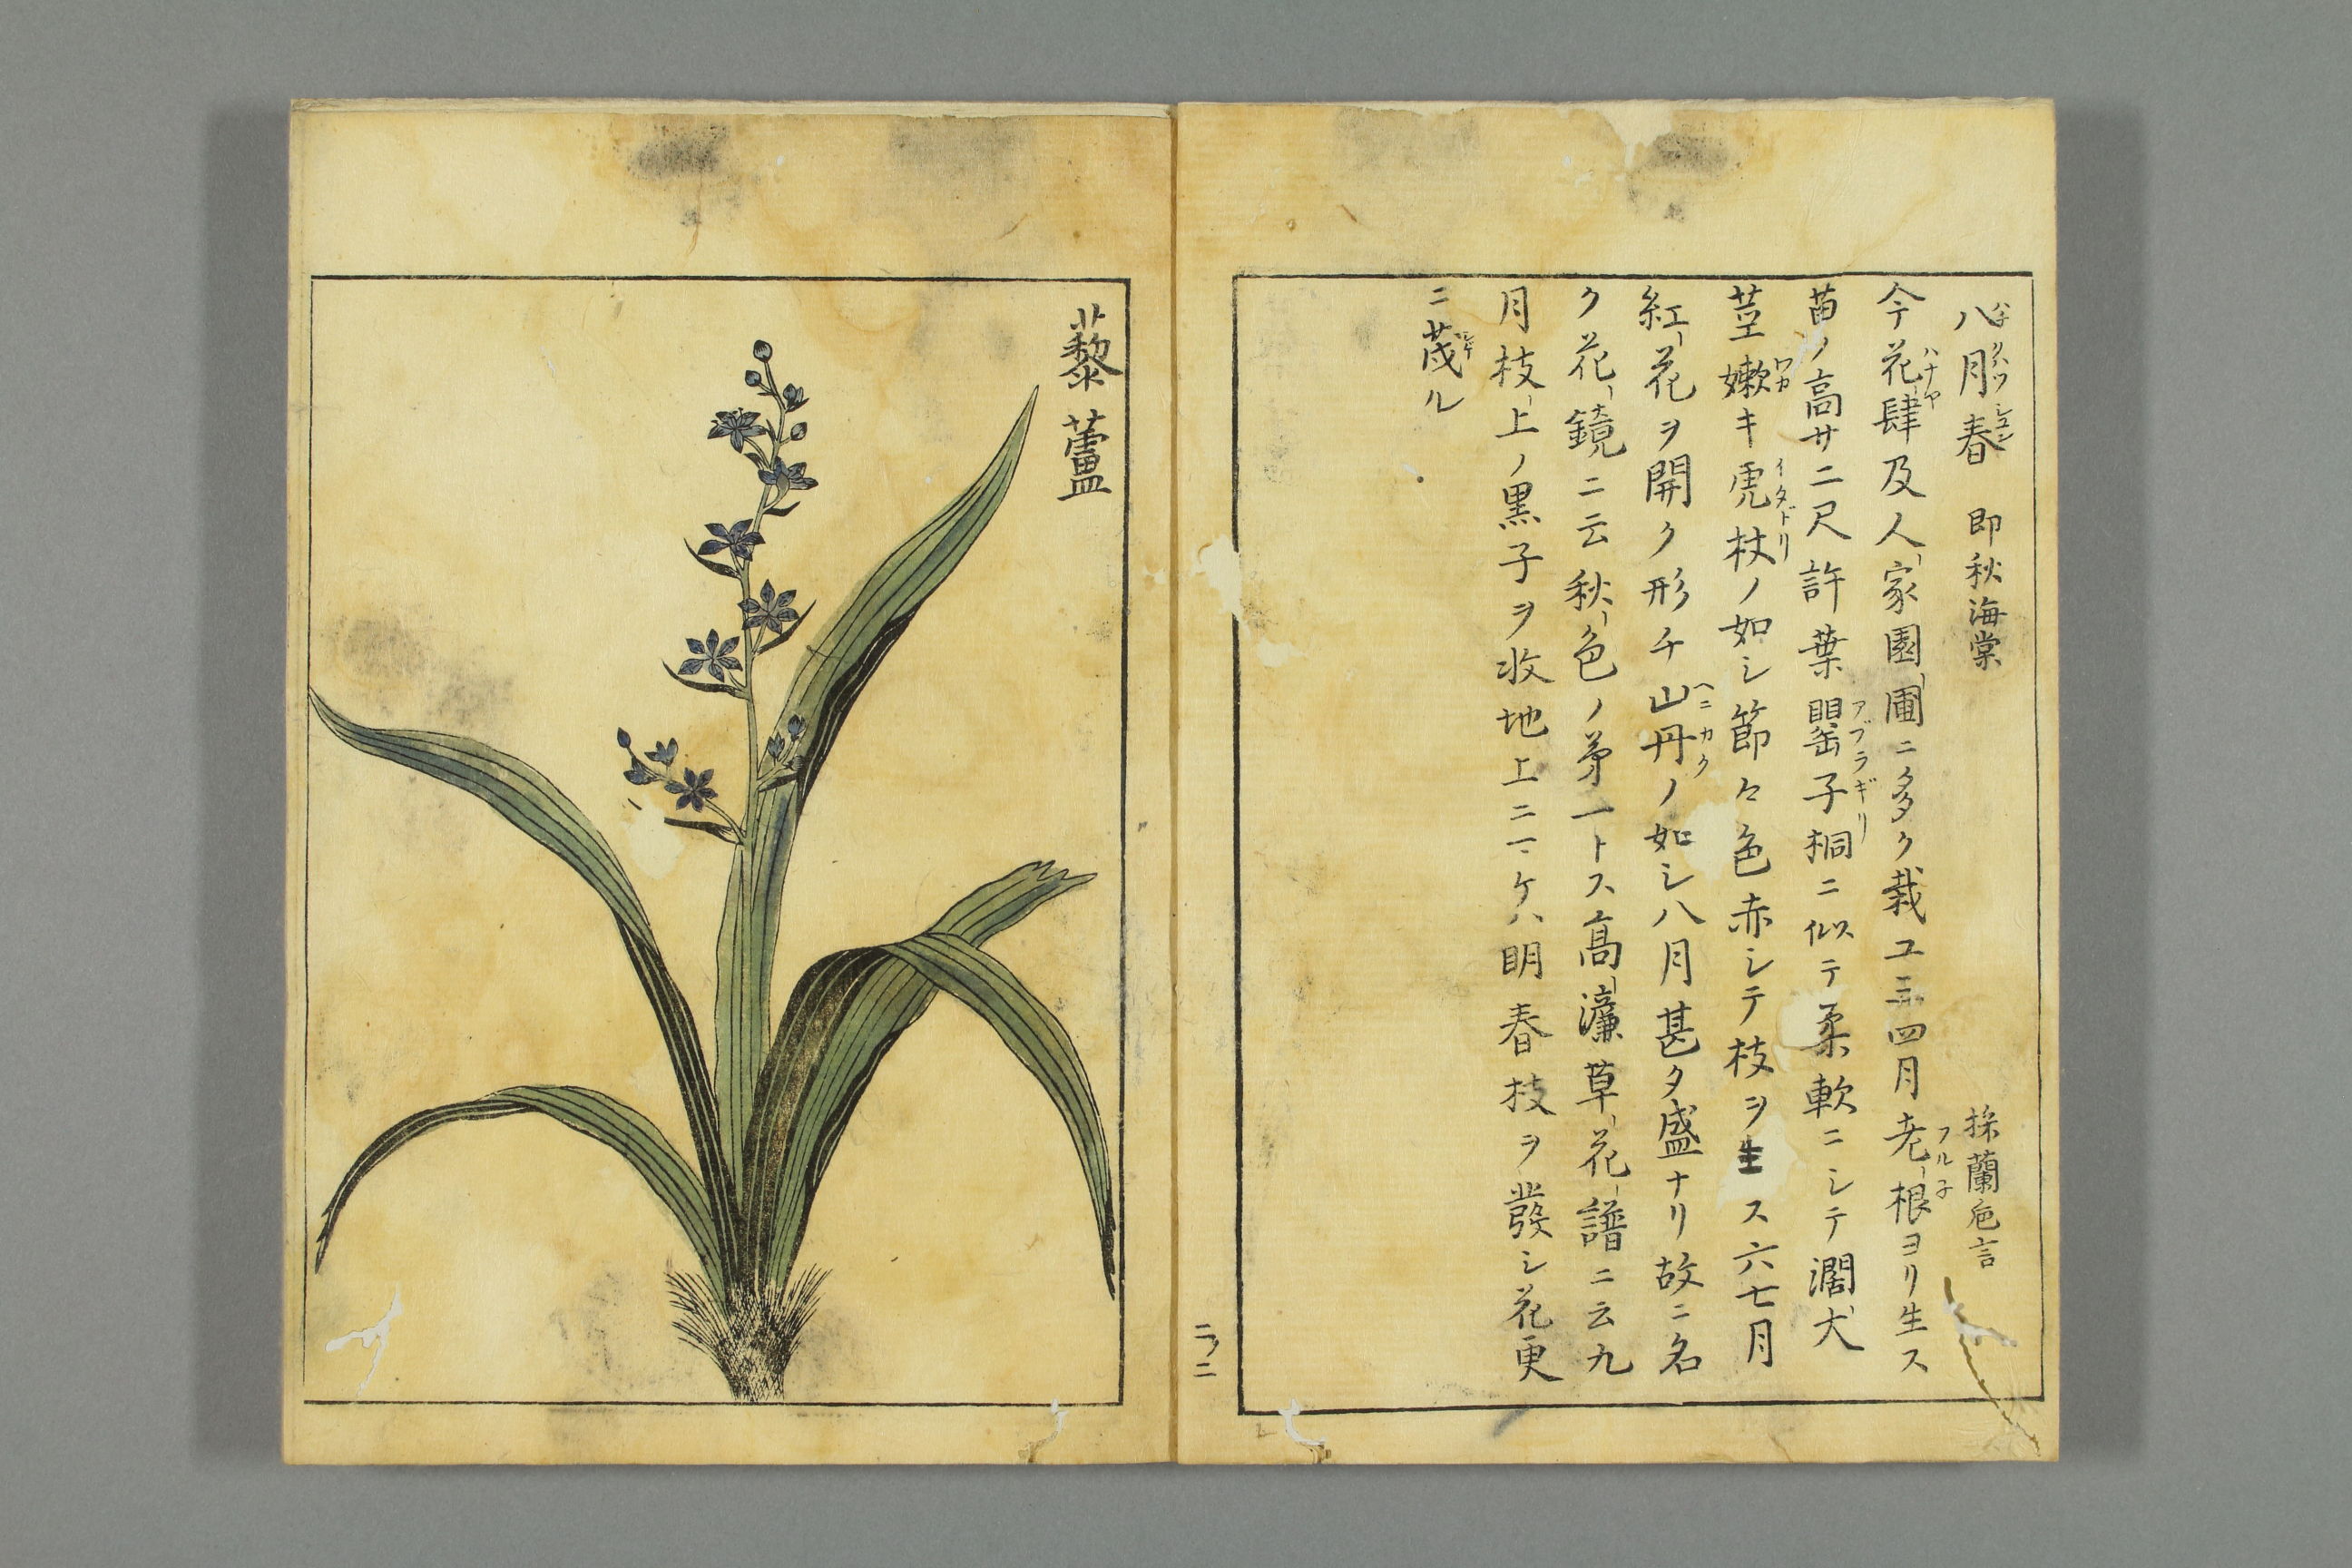 八月春 即秋海棠 採蘭卮言
ハチグハツシユン
今花肆及人家園圃ニ多ク栽ユ三四月老根ヨリ生ス
ハナヤ フルネ
苗ノ高サ二尺許葉罌子桐ニ似テ柔軟ニシテ濶大
アブラギリ
茎嫩キ虎杖ノ如シ節々色赤シテ枝ヲ生ス六七月
ワカ イタドリ
紅花ヲ開ク形チ山丹ノ如シ八月甚タ盛ナリ故ニ名
ク花鏡ニ云秋色ノ第一トス高濂草花譜ニ云九
月枝上ノ黒子ヲ收地上ニマケハ明春枝ヲ發シ花更
ニ茂ル
シゲ
二ノ二
藜蘆